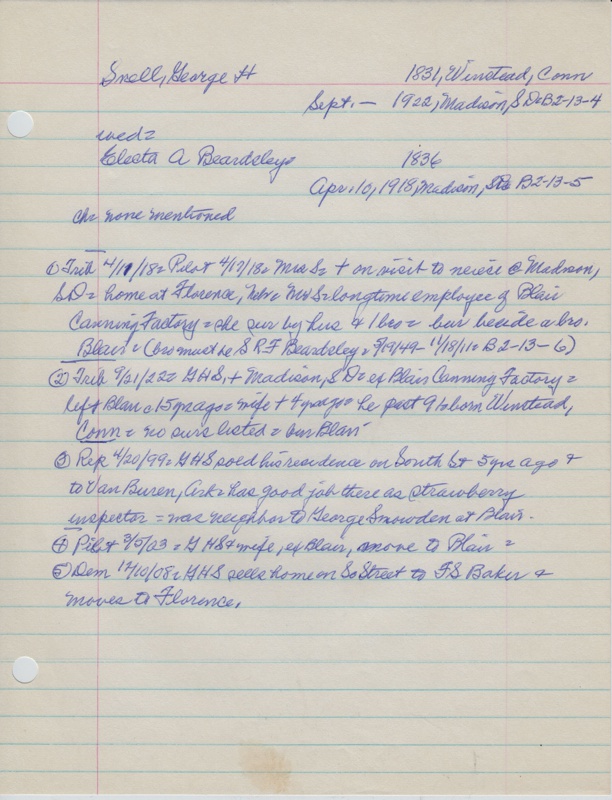 Snell, George H 1831, Winstead, Conn
Sept. — 1922, Madison, SD=B2-13-4
wed=
Electa A Beardsley= 1836
Apr. 10, 1918, Madison, SD= B2-13-5
ch= none mentioned
① Trib 4/11/18= Pilot 4/17/18= Mrs S= + on visit to neice @ Madison,
SD= home at Florence, Neb= Mr S=longtime employee of Blair
Canning Factory= she sur by hus & 1 bro= bur beside a bro.
Blair= (bro must be S R F Beardsley, 11/18/11= B2-13-6)
② Trib 9/21/22= GHS, + Madison, SD= of Blair Canning Factory=
left Blair c 15 yrs ago= wife + 4 yrs ago= he past 91= born Winstead,
Conn= no surs listed= bur Blair
③ Rep 4/20/99= GHS sold his residence on South St 5 yrs ago &
to Van Buren, Ark= has good job there as strawberry
inspector= was neighbor to George Smowden at Blair.
④ Pilot 3/5/03= GHS & wife, of Blair, move to Blair=
⑤ Dem 12/10/08= GHS sells home on So Street to FS Baker &
moves to Florence.